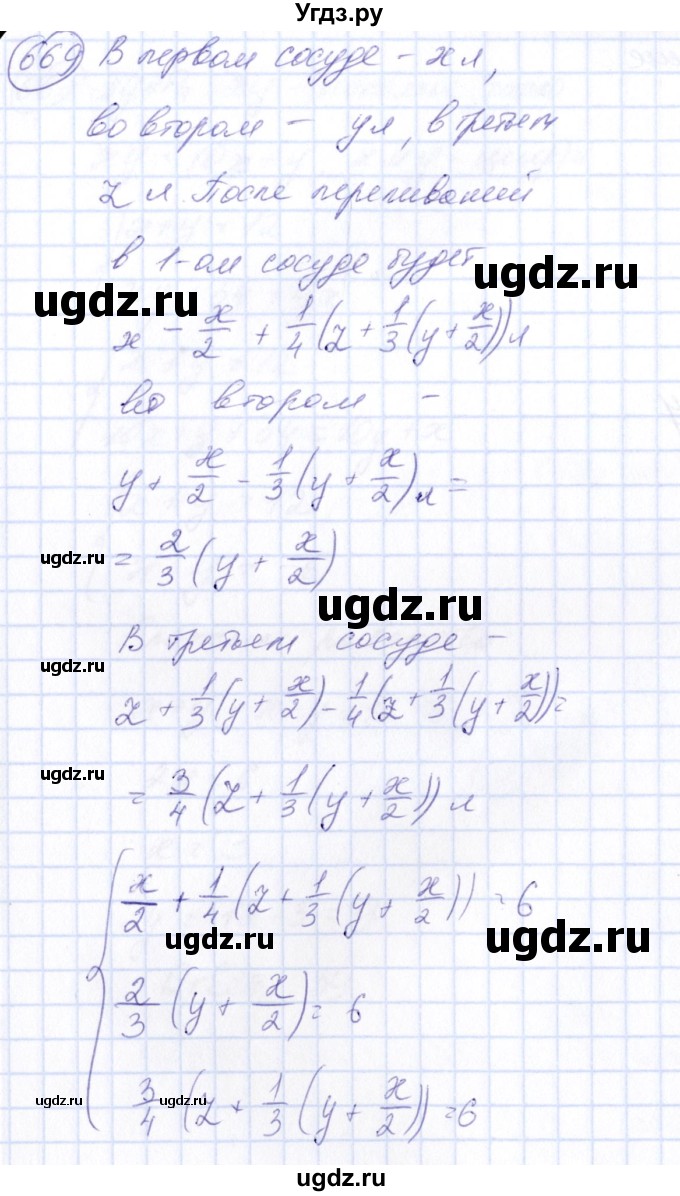 Угдз.ру
669 В первом сосуде - x л,
во втором - y л, в третьем
z л. После переливаний
в 1-ом сосуде будет
ugdz.ru
ugdz.ru
x - x/2 + 1/4(z + 1/3(y + x/2)) л
во втором -
y + x/2 - 1/3(y + x/2) л =
ugdz.ru
= 2/3(y + x/2)
ugdz.ru
В третьем сосуде -
ugdz.ru
z + 1/3(y + x/2) - 1/4(z + 1/3(y + x/2)) =
ugdz.ru
= 3/4(z + 1/3(y + x/2)) л
{ x/2 + 1/4(z + 1/3(y + x/2)) = 6
ugdz.ru
ugdz.ru
2/3(y + x/2) = 6
ugdz.ru
ugdz.ru
3/4(z + 1/3(y + x/2)) = 6
ugdz.ru